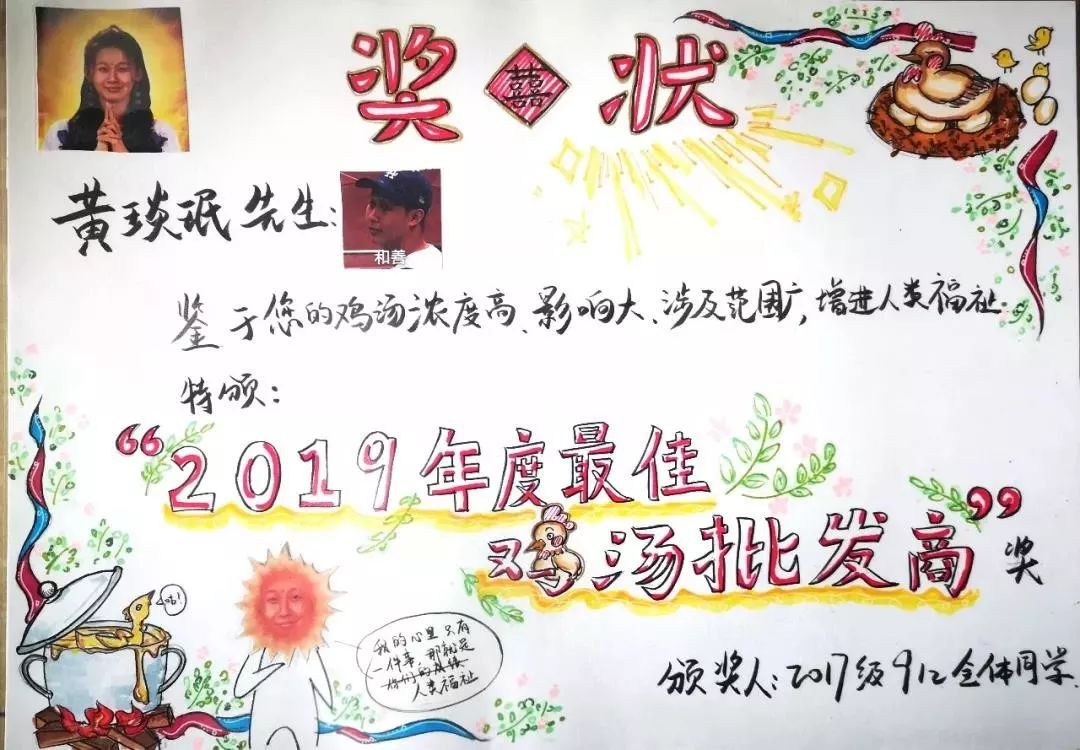 奖囍状
黄琰珉先生：
和善
鉴于您的鸡汤浓度高、影响大、涉及范围广，增进人类福祉
特颁：
“2019年度最佳
鸡汤批发商”奖
我的心里只有
一件事，那就是
你们的成绩
人类福祉
颁奖人：2017级912全体同学.